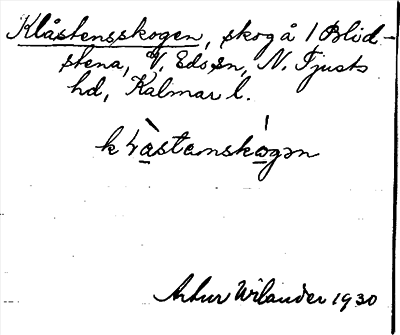 Klåstensskogen, skog å 1 Blid-
stena, V. Eds sn, N. Tjusts
hd, Kalmar l.
Artur Wilander 1930